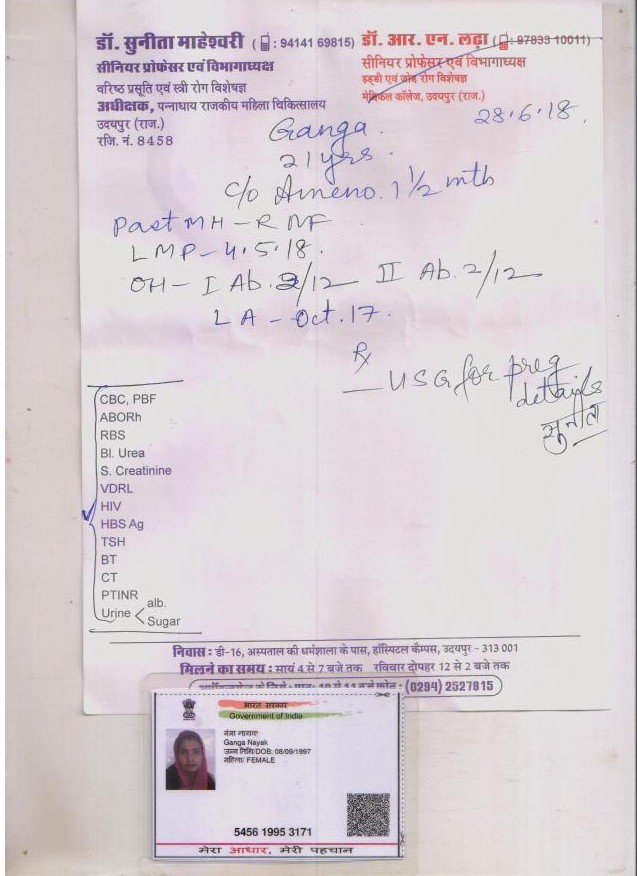 डॉ. सुनीता माहेश्वरी ( : 94141 69815)
सीनियर प्रोफेसर एवं विभागाध्यक्ष
वरिष्ठ प्रसूति एवं स्त्री रोग विशेषज्ञ
अधीक्षक, पन्नाधाय राजकीय महिला चिकित्सालय
उदयपुर (राज.)
रजि. नं. 8458
डॉ. आर. एन. लढ़ा ( : 97833 10011)
सीनियर प्रोफेसर एवं विभागाध्यक्ष
हड्डी एवं जोड़ रोग विशेषज्ञ
मेडिकल कॉलेज, उदयपुर (राज.)
28.6.18.
Ganga.
21 yrs.
c/o Ameno. 1 1/2 mth
Past MH - R NF
LMP - 4.5.18.
OH - I Ab. 2/12 II Ab. 2/12
LA - Oct. 17.
Rx
— USG for preg
details
सुनीता
CBC, PBF
ABORh
RBS
Bl. Urea
S. Creatinine
VDRL
HIV
HBS Ag
TSH
BT
CT
PTINR
Urine < alb.
Sugar
निवास : डी-16, अस्पताल की धर्मशाला के पास, हॉस्पिटल कैम्पस, उदयपुर - 313 001
मिलने का समय : सायं 4 से 7 बजे तक रविवार दोपहर 12 से 2 बजे तक
(0294) 2527815
भारत सरकार
Government of India
Ganga Nayak
जन्म तिथि/DOB: 08/09/1997
महिला/ FEMALE
5456 1995 3171
मेरा आधार, मेरी पहचान